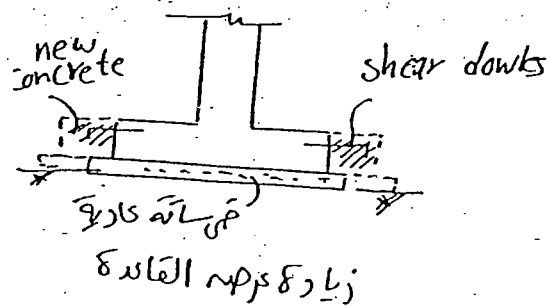 new
concrete
shear dowels
خرسانة عادية
زيادة عرض القاعدة